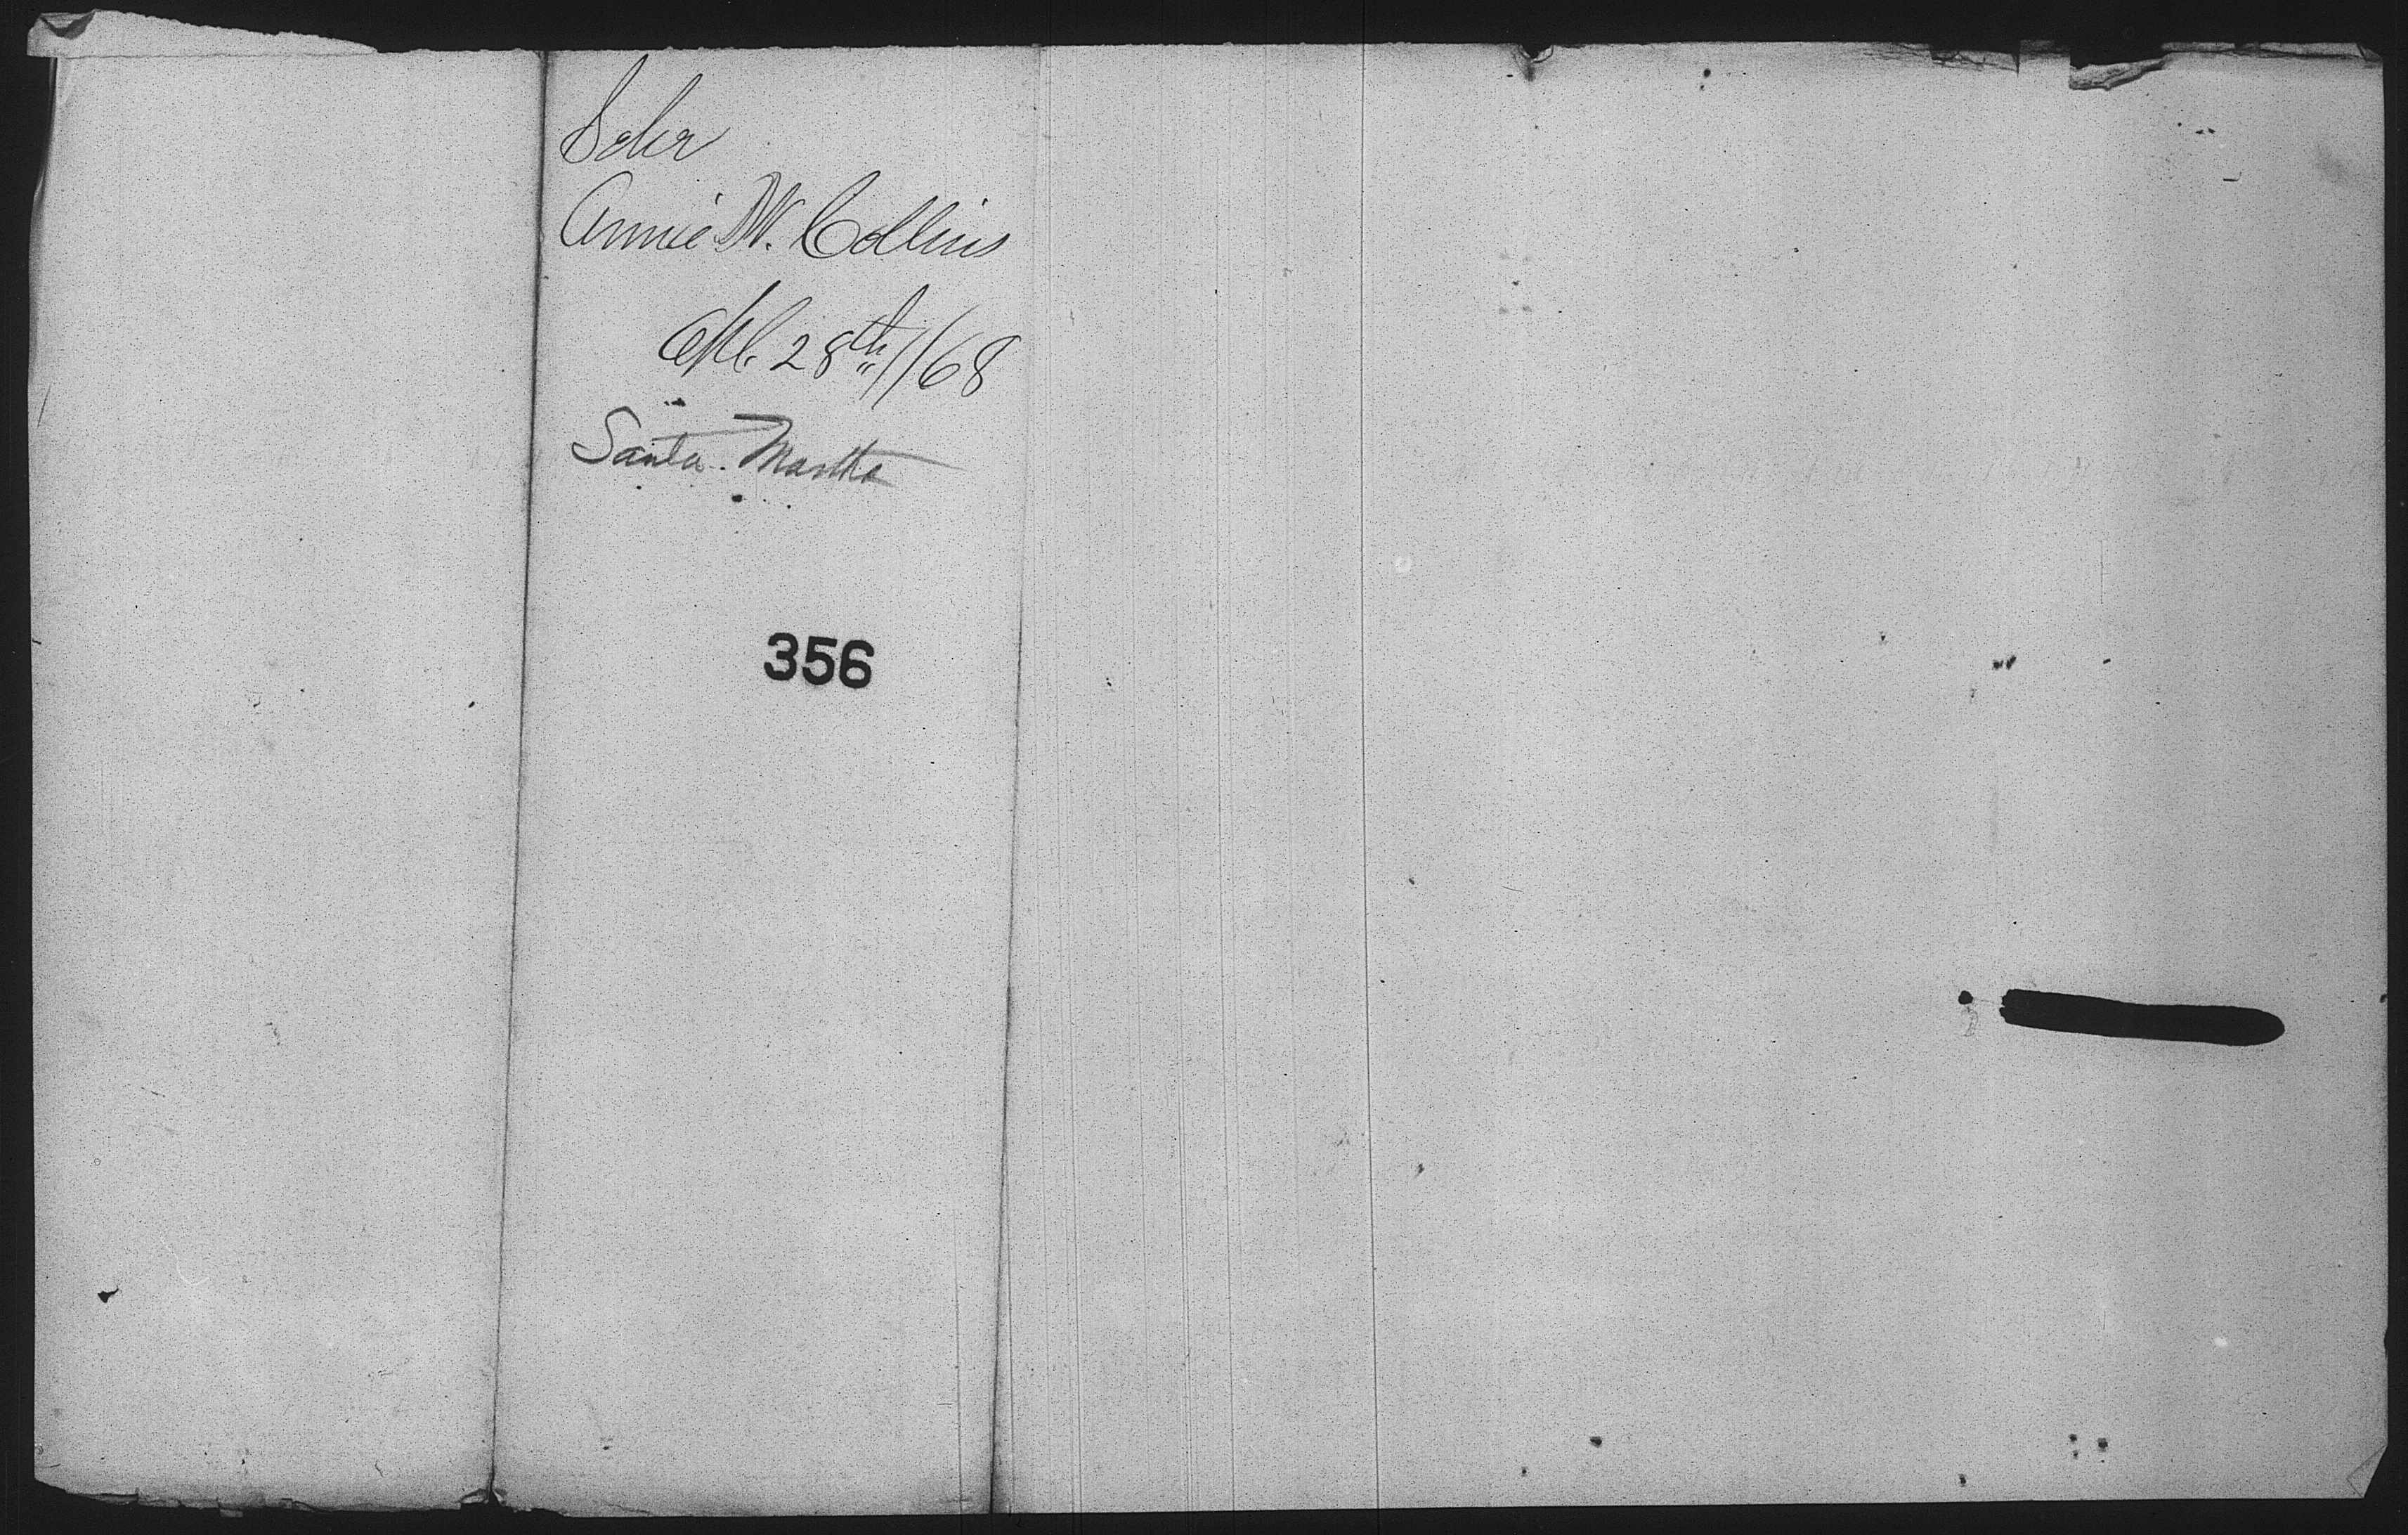 Schr
Annie W. Collins
Apl. 28th//68
Santa Martha
356